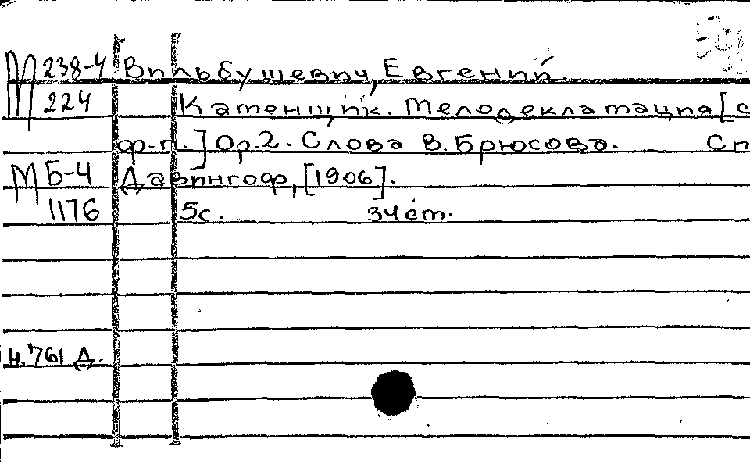 М 238-4 Вильбушевич, Евгений.
224 Каменщик. Мелодекламация [с
ф-п.] Ор.2. Слова В. Брюсова. Сп
М Б-4 Давингоф, [1906].
1176 5с. 34см.
Н.761 Д.